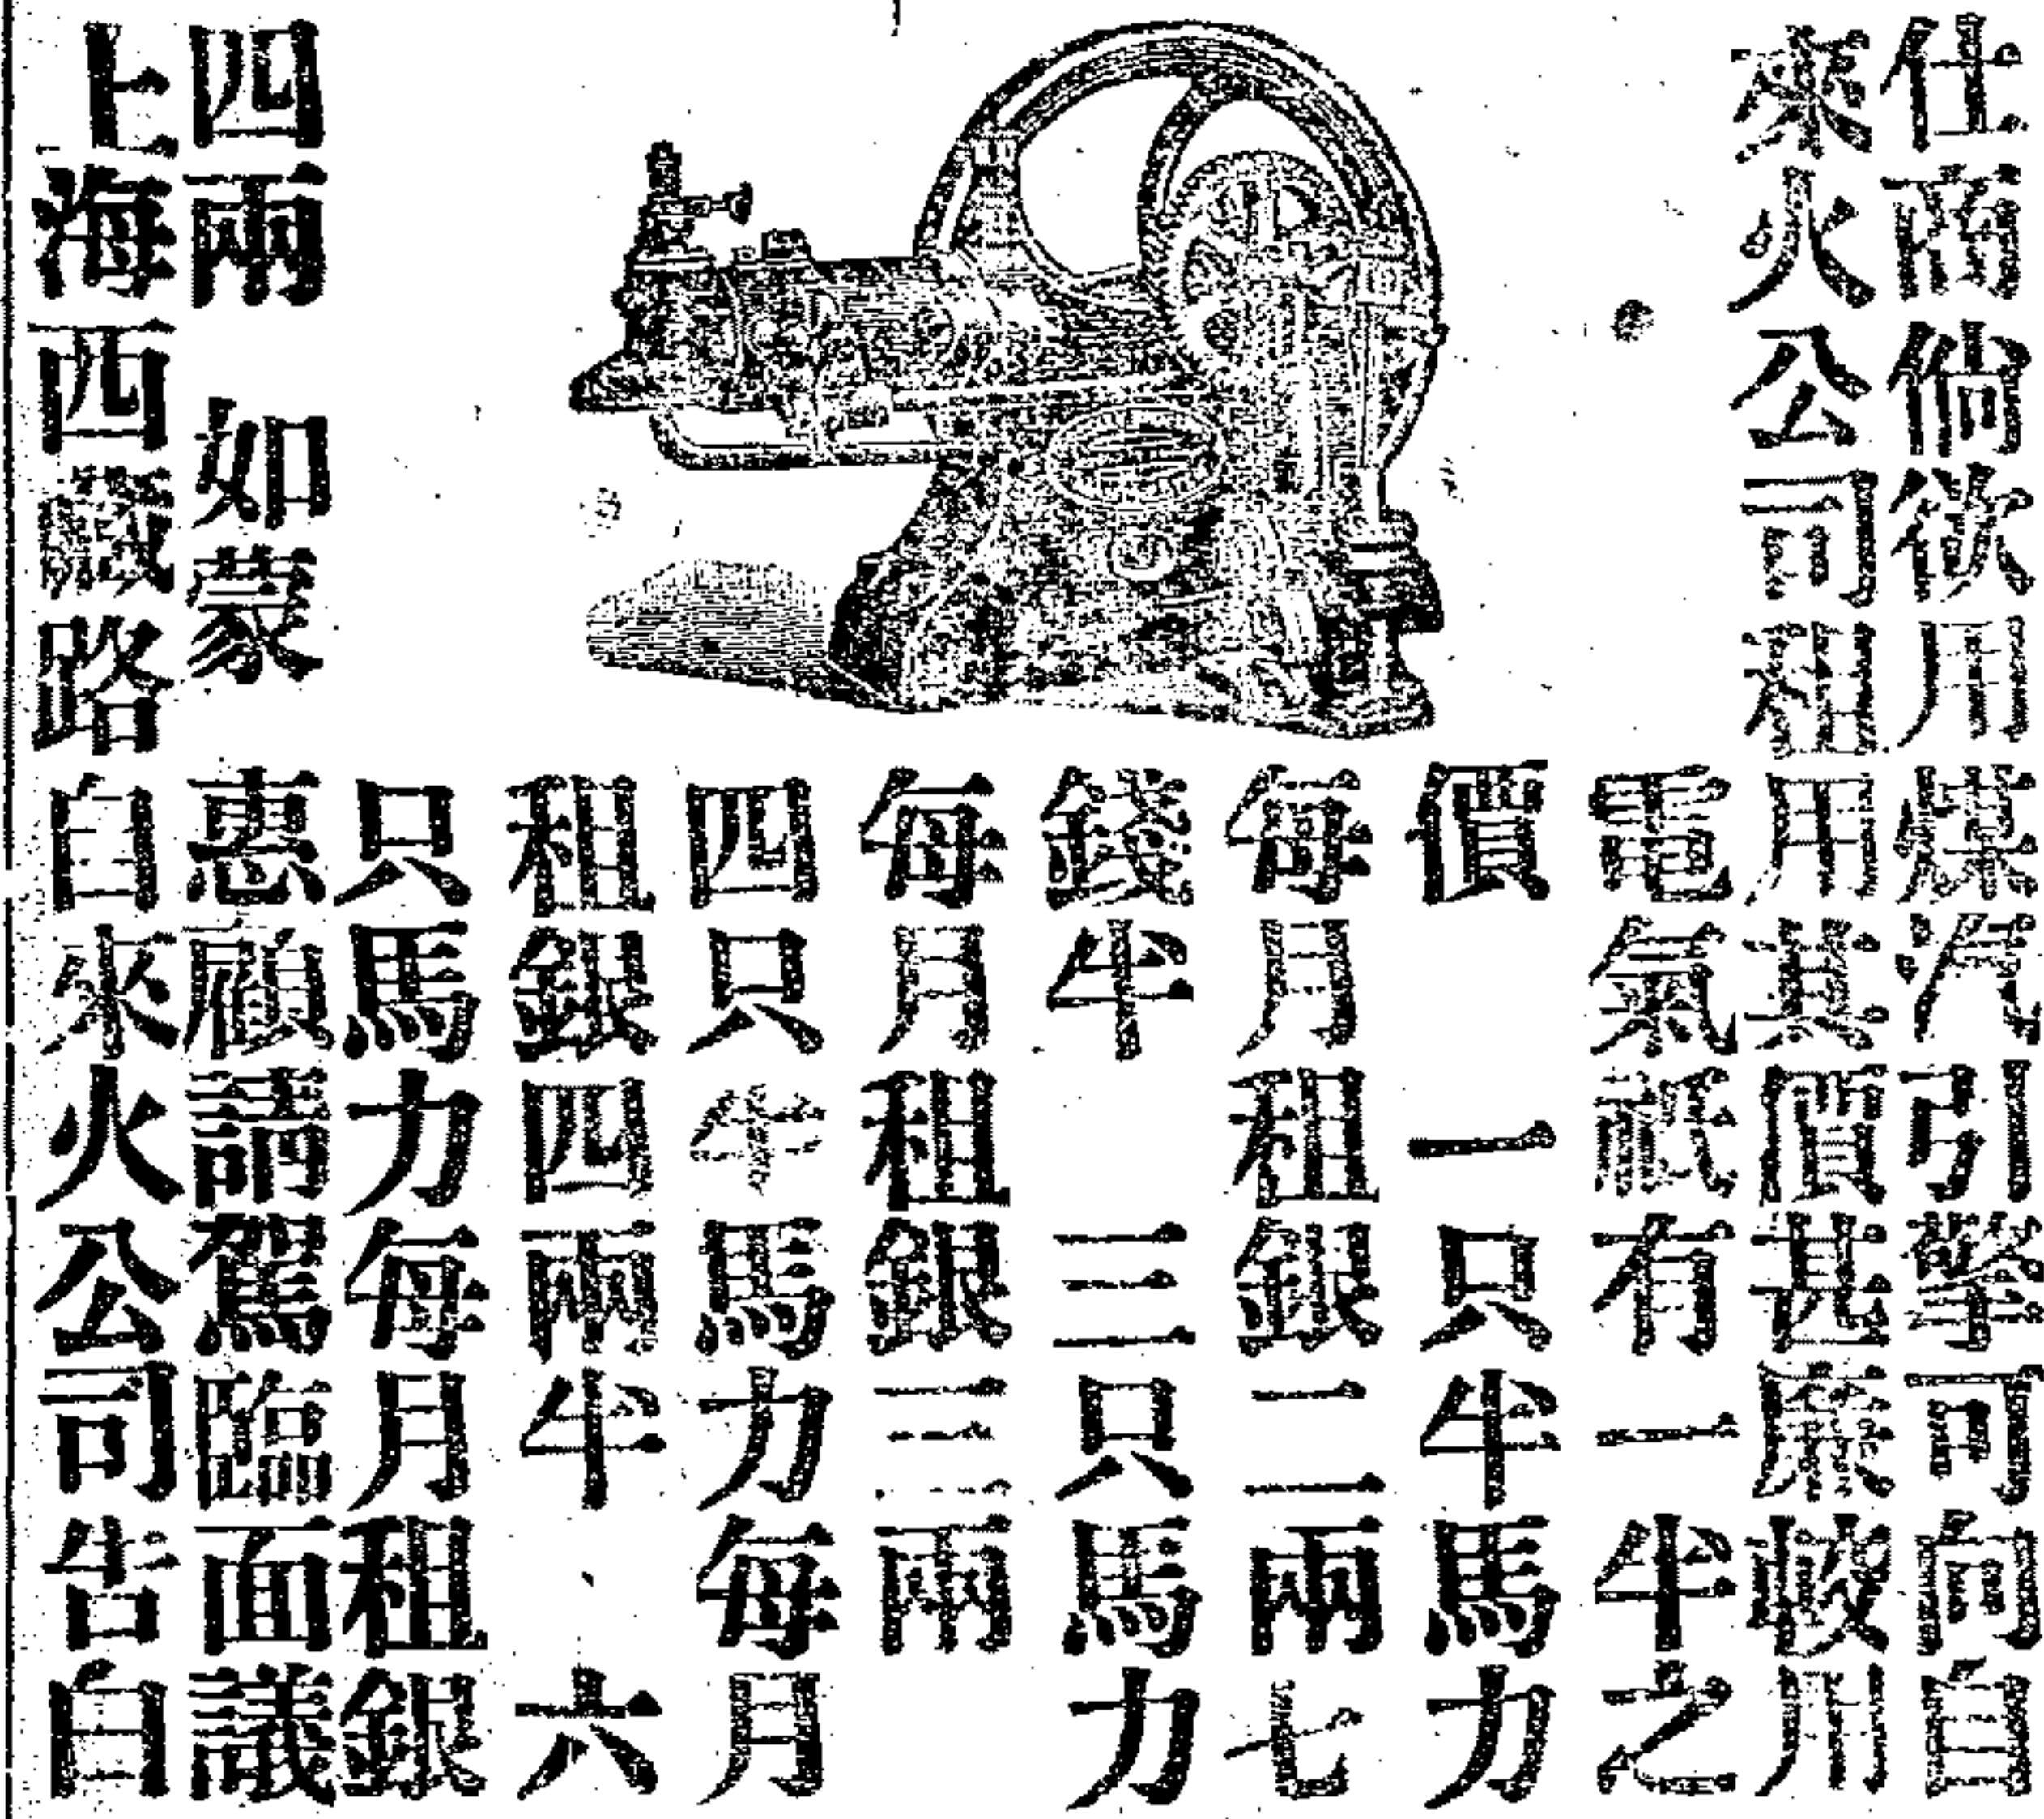 仕商倘欲用煤汽引擎可向自
來火公司租用其價甚廉較用
電氣祇有一半之
價 一只半馬力
每月租銀二兩七
錢半 三只馬力
每月租銀三兩
四只半馬力每月
租銀四兩半、六
只馬力每月租銀
四兩 如蒙惠顧請駕臨面議
上海西藏路自來火公司告白